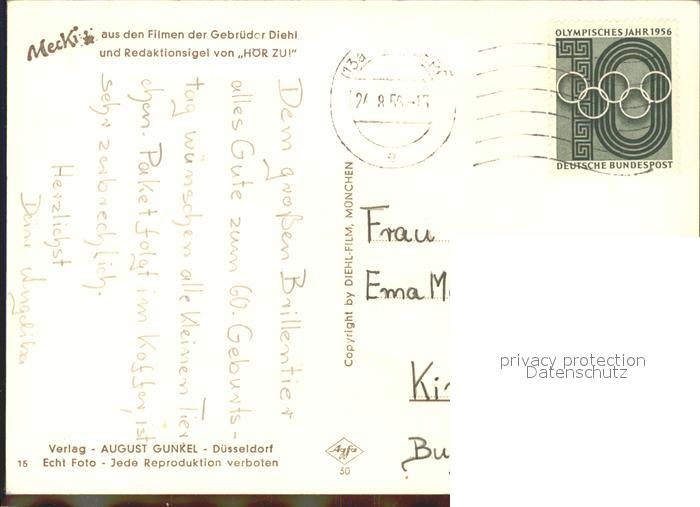 Mecki aus den Filmen der Gebrüder Diehl
und Redaktionsigel von „HÖR ZU!"
Dem großen Brillentier
alles Gute zum 60. Geburts-
tag wünschen alle kleinen Tier
chen. Paket folgt im Koffer, ist
sehr zerbrechlich.
Herzlichst
Deine Angelika
Verlag - AUGUST GUNKEL - Düsseldorf
15 Echt Foto - Jede Reproduktion verboten
Copyright by DIEHL-FILM, MÜNCHEN
Agfa
50
OLYMPISCHES JAHR 1956
DEUTSCHE BUNDESPOST
Frau
Ema M
Ki
Bu
privacy protection
Datenschutz